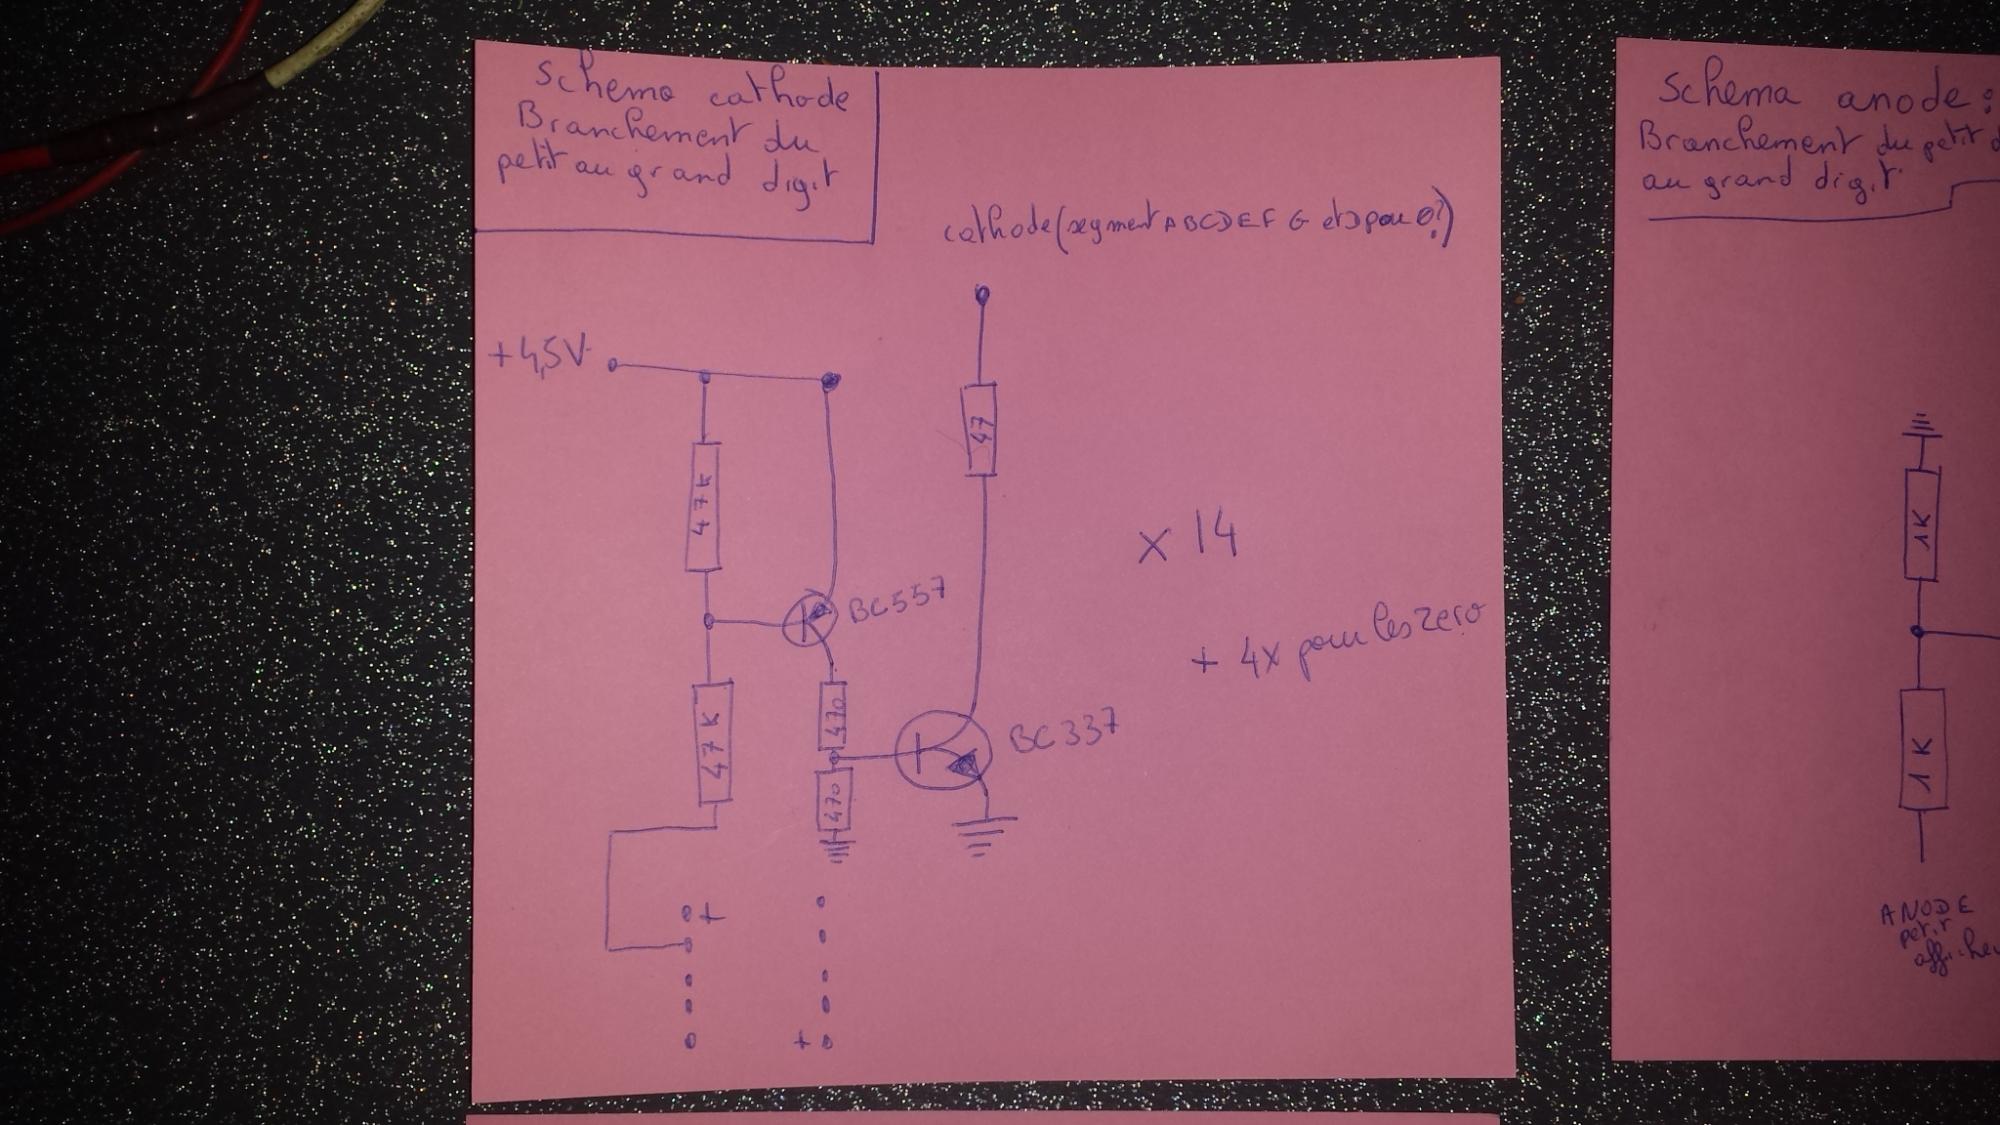 Schema cathode
Branchement du
petit au grand digit
cathode (segment ABCDEF G et pour 0?)
+4,5V
47K
47
x 14
BC557
+ 4x pour les zero
47K
470
BC337
470
+
+
Schema anode:
Branchement du petit d
au grand digit
1K
1K
ANODE
petit
affiche